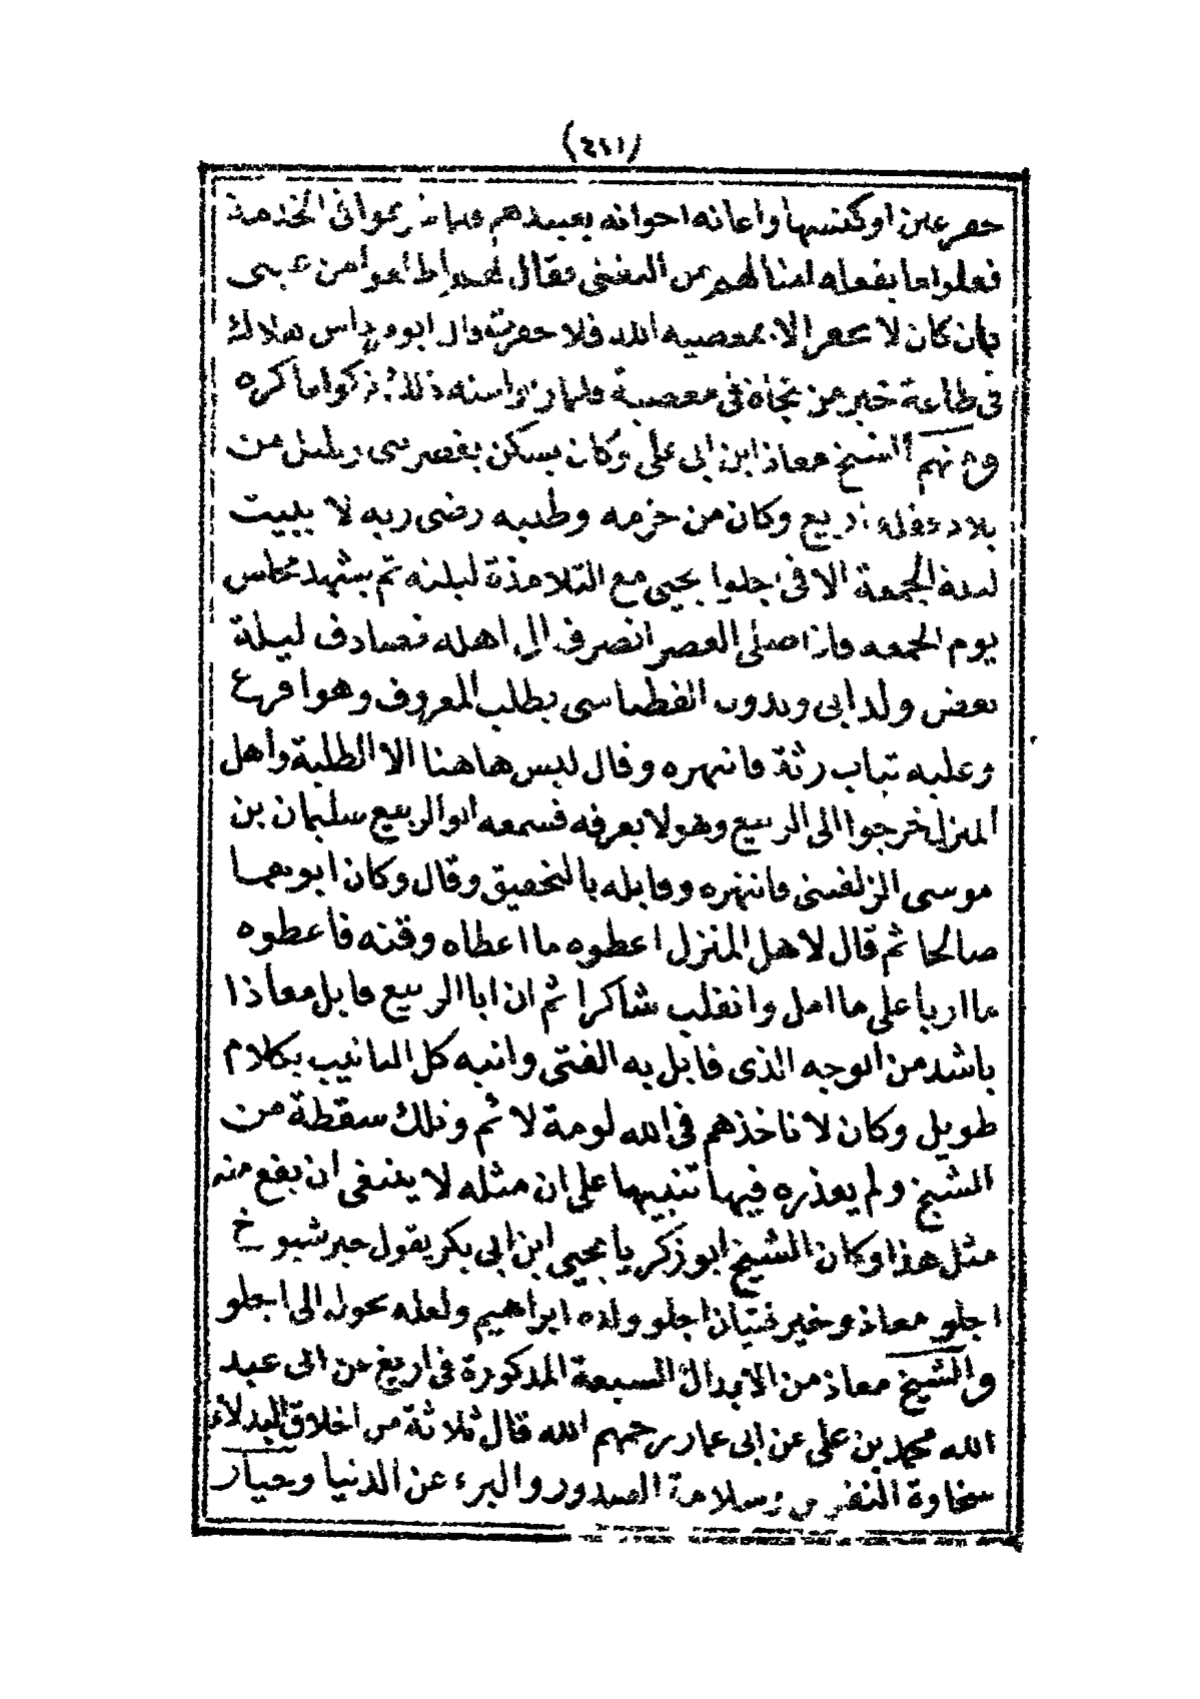 (٤١١)
حفر عين او كنسها واعانه اخوانه بعبيدهم فلما شرعوا فى الخدمة
فعلوا ما يفعله امثالهم من التغنى فقال لهم
فان كان لا يحفر الا بمعصية الله فلا حفرته قال ابو مرداس هلاك
فى طاعة خير من نجاة فى معصية فلما راوا منه ذلك تركوا ما كره
ومنهم الشيخ معاذ ابن ابى على وكان يسكن بقصر بنى من
بلاد اريغ وكان من حزمه وطلبه رضى ربه لا يبيت
ليلة الجمعة الا فى اجلوا يحيى مع التلامذة ليلته ثم يشهد مجلس
يوم الجمعه فاذا صلى العصر انصرف الى اهله فصادف ليلة
بعض ولد ابى ويدون الفطناسى يطلب المعروف وهو اقرع
وعليه ثياب رثة فانتهره وقال ليس هاهنا الا الطلبة واهل
المنزل خرجوا الى الربيع وهو لا يعرفه فسمعه ابو الربيع سليمان بن
موسى الزلفينى فانتهره وقابله بالتحميق وقال وكان ابوهما
صالحا ثم قال لاهل المنزل اعطوه ما اعطاه وقته فاعطوه
ما اربا على ما امل وانقلب شاكرا ثم ان ابا الربيع قابل معاذا
باشد من الوجه الذى قابل به الفتى وانبه كل التانيب بكلام
طويل وكان لا تاخذهم فى الله لومة لائم وتلك سقطة من
الشيخ ولم يعذره فيها تنبيها على ان مثله لا ينبغى ان يقع منه
مثل هذا وكان الشيخ ابو زكريا يحيى ابن ابى بكر يقول خير شيوخ
اجلو معاذ وخير فتيان اجلو ولده ابراهيم ولعله تحول الى اجلو
والشيخ معاذ من الابدال السبعة المذكورة فى اريغ عن ابى عبد
الله محمد بن على عن ابى عمار رحمهم الله قال ثلاثة من اخلاق البدلاء
سخاوة النفس وسلامة الصدور والبرء عن الدنيا وخيار